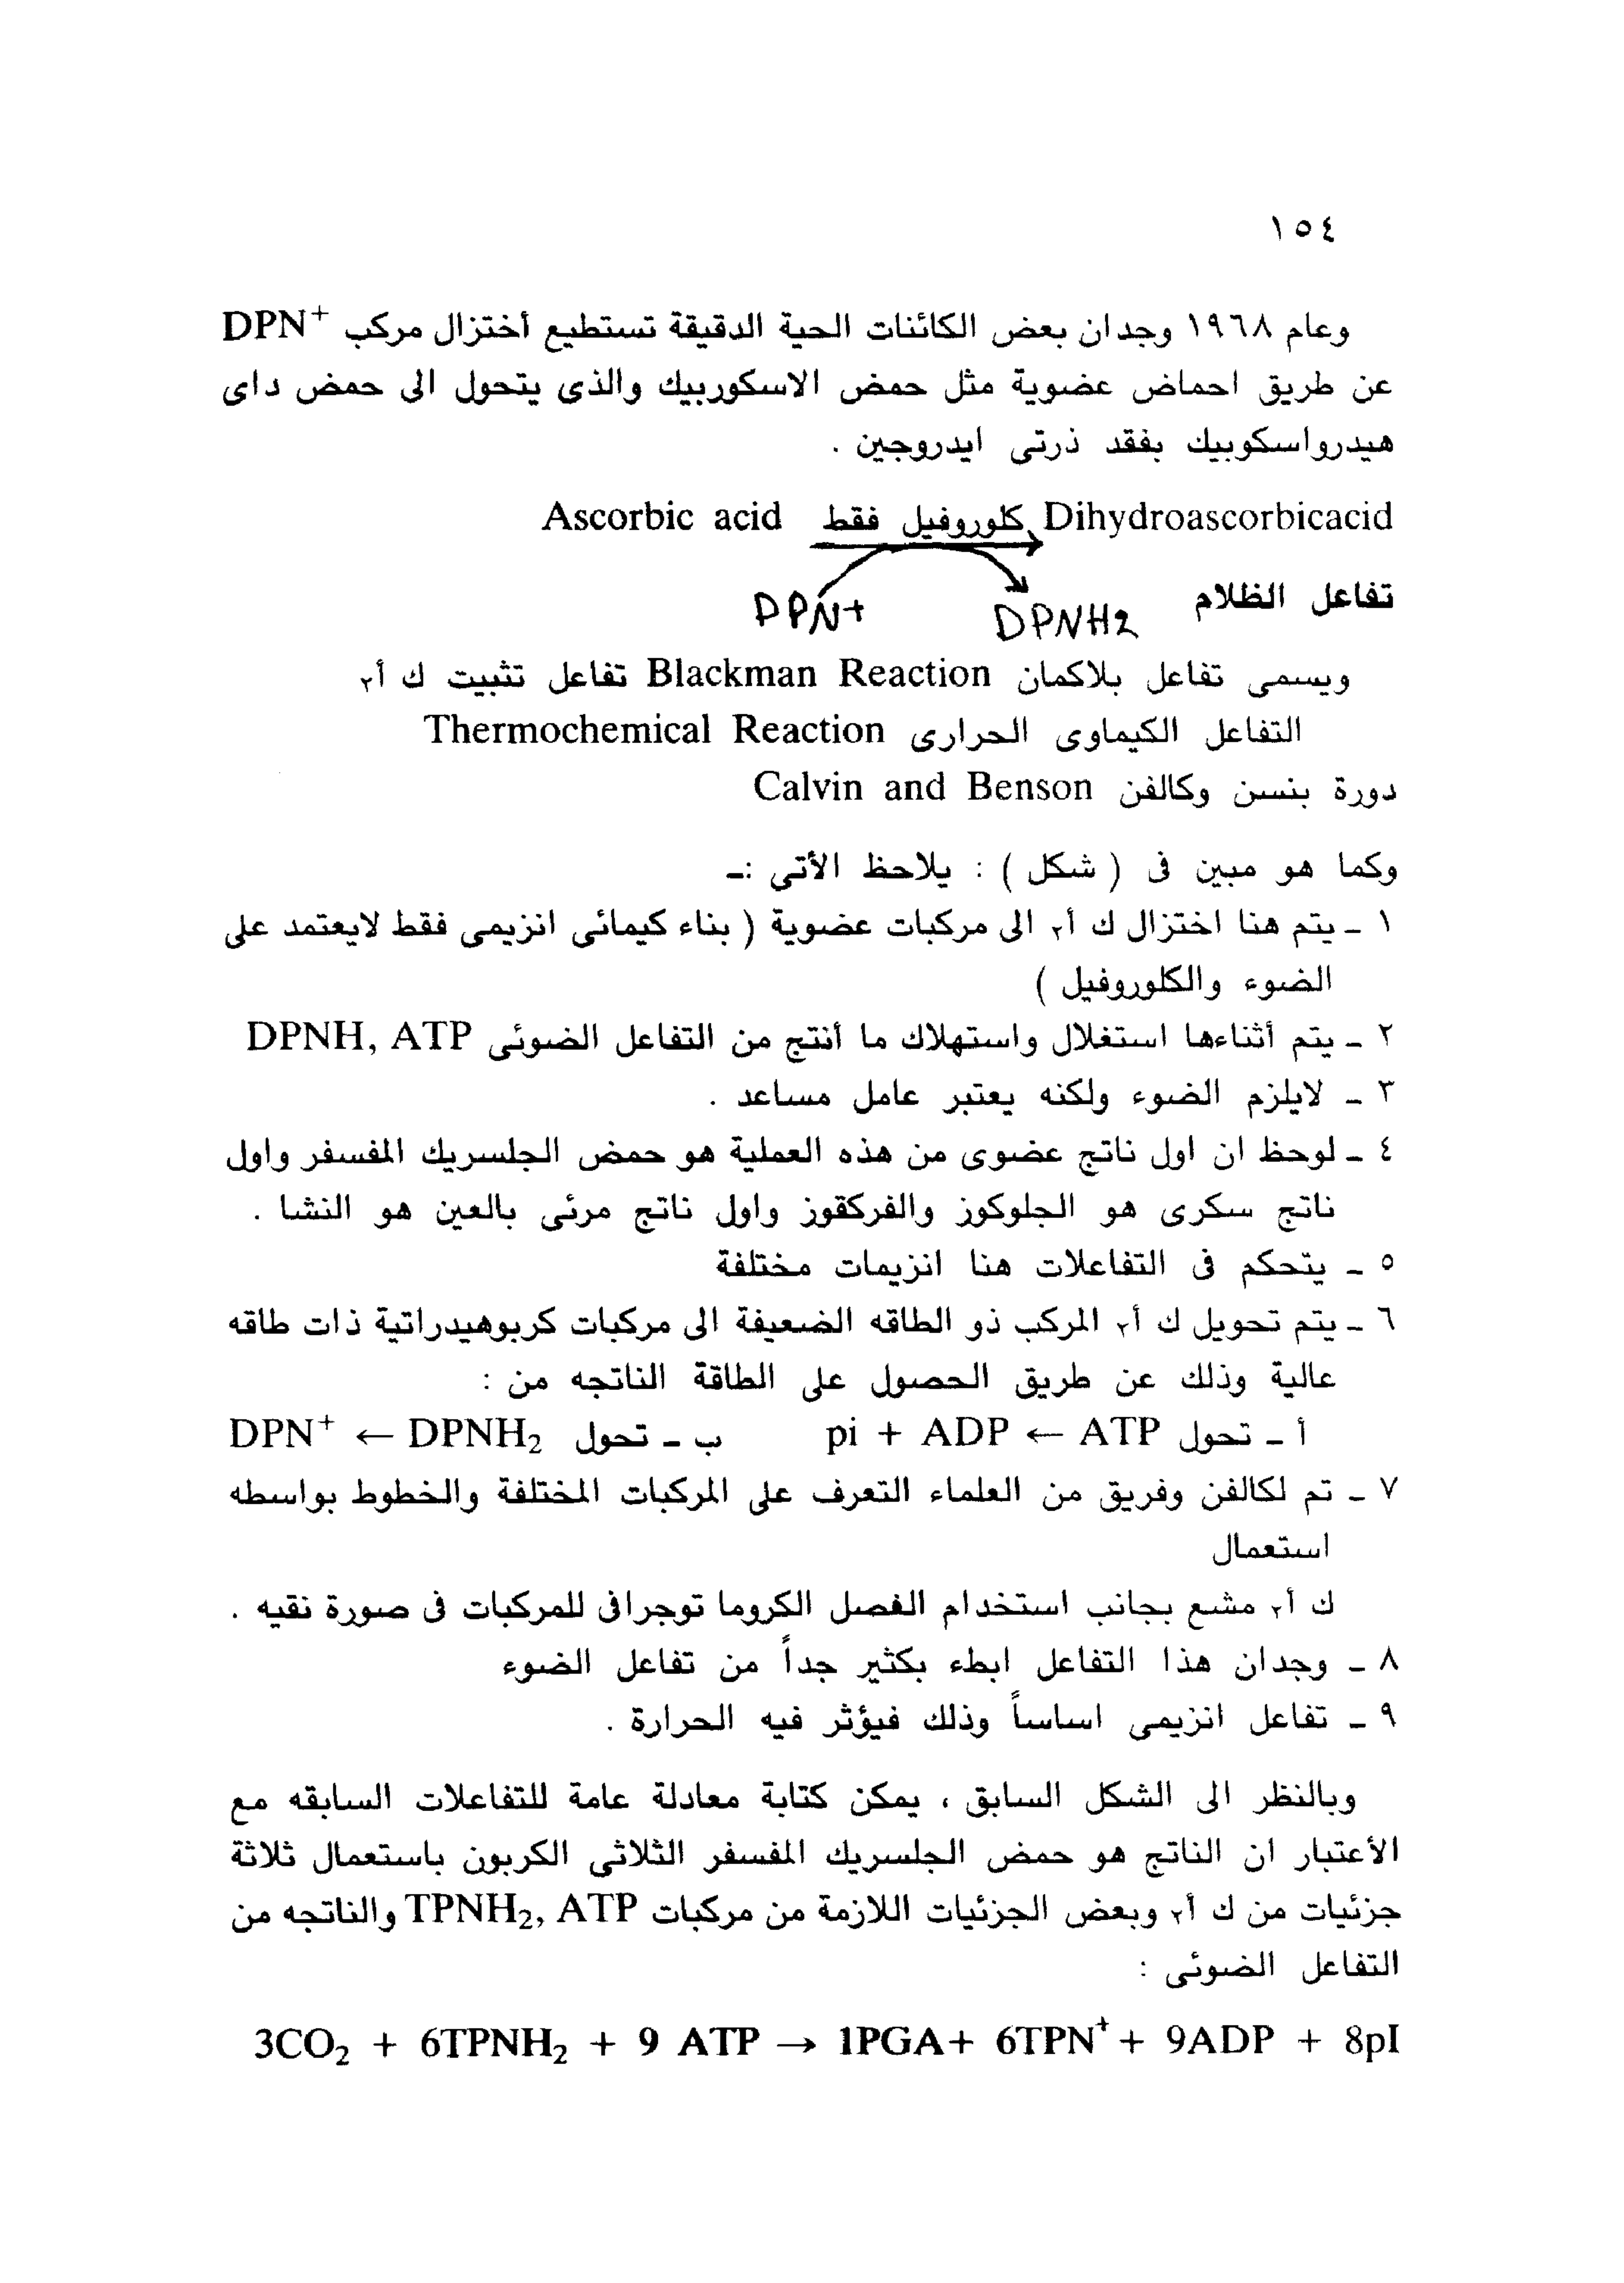 ١٥٤
وعام ١٩٦٨ وجدان بعض الكائنات الحية الدقيقة تستطيع أختزال مركب DPN⁺
عن طريق احماض عضوية مثل حمض الاسكوربيك والذى يتحول الى حمض داى
هيدرواسكوبيك بفقد ذرتى ايدروجين .
Ascorbic acid كلوروفيل فقط Dihydroascorbicacid
DPN+ DPNH2
تفاعل الظلام
ويسمى تفاعل بلاكمان Blackman Reaction تفاعل تثبيت ك أ٢
التفاعل الكيماوى الحرارى Thermochemical Reaction
دورة بنسن وكالفن Calvin and Benson
وكما هو مبين فى ( شكل ) : يلاحظ الأتى :ـ
١ ـ يتم هنا اختزال ك أ٢ الى مركبات عضوية ( بناء كيمائى انزيمى فقط لايعتمد على
الضوء والكلوروفيل )
٢ ـ يتم أثناءها استغلال واستهلاك ما أنتج من التفاعل الضوئى DPNH, ATP
٣ ـ لايلزم الضوء ولكنه يعتبر عامل مساعد .
٤ ـ لوحظ ان اول ناتج عضوى من هذه العملية هو حمض الجلسريك المفسفر واول
ناتج سكرى هو الجلوكوز والفركقوز واول ناتج مرئى بالعين هو النشا .
٥ ـ يتحكم فى التفاعلات هنا انزيمات مختلفة
٦ ـ يتم تحويل ك أ٢ المركب ذو الطاقه الضعيفة الى مركبات كربوهيدراتية ذات طاقه
عالية وذلك عن طريق الحصول على الطاقة الناتجه من :
أ ـ تحول pi + ADP ← ATP ب ـ تحول DPN⁺ ← DPNH₂
٧ ـ تم لكالفن وفريق من العلماء التعرف على المركبات المختلفة والخطوط بواسطه
استعمال
ك أ٢ مشع بجانب استخدام الفصل الكروما توجرافى للمركبات فى صورة نقيه .
٨ ـ وجدان هذا التفاعل ابطء بكثير جداً من تفاعل الضوء
٩ ـ تفاعل انزيمى اساساً وذلك فيؤثر فيه الحرارة .
وبالنظر الى الشكل السابق ، يمكن كتابة معادلة عامة للتفاعلات السابقه مع
الأعتبار ان الناتج هو حمض الجلسريك المفسفر الثلاثى الكربون باستعمال ثلاثة
جزئيات من ك أ٢ وبعض الجزئيات اللازمة من مركبات TPNH₂, ATP والناتجه من
التفاعل الضوئى :
3CO₂ + 6TPNH₂ + 9 ATP → 1PGA+ 6TPN⁺ + 9ADP + 8pI